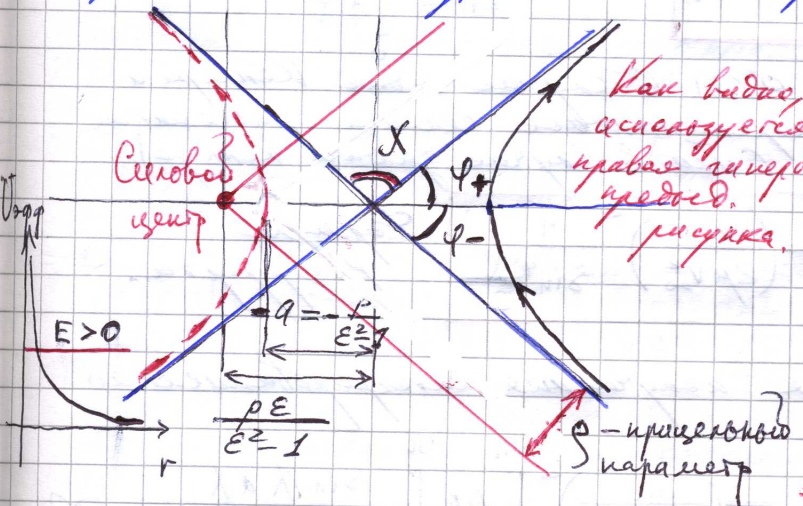 Как видно,
используется
правая гипер
предыд.
рисунка.
Силовой
центр
χ
φ+
φ-
Uэфф
E > 0
r
- a = - p/(ε²-1)
pε/(ε²-1)
ρ - прицельный
параметр